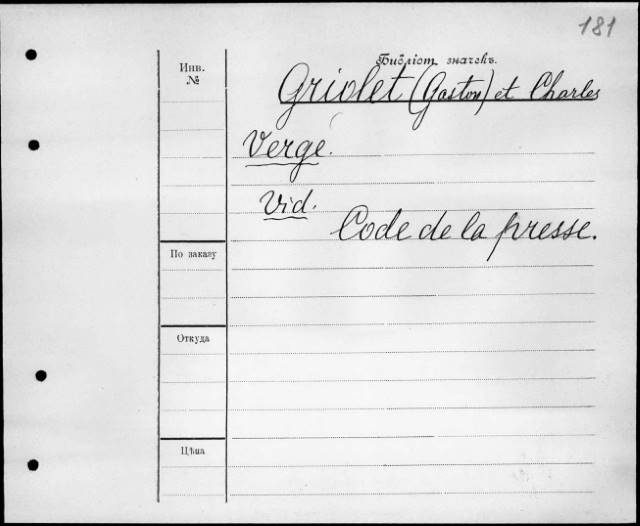 181
Инв.
№
Библіот. значекъ.
Griolet (Gaston) et Charles
Vergé.
Vid.
Code de la presse.
По заказу
Откуда
Цѣна